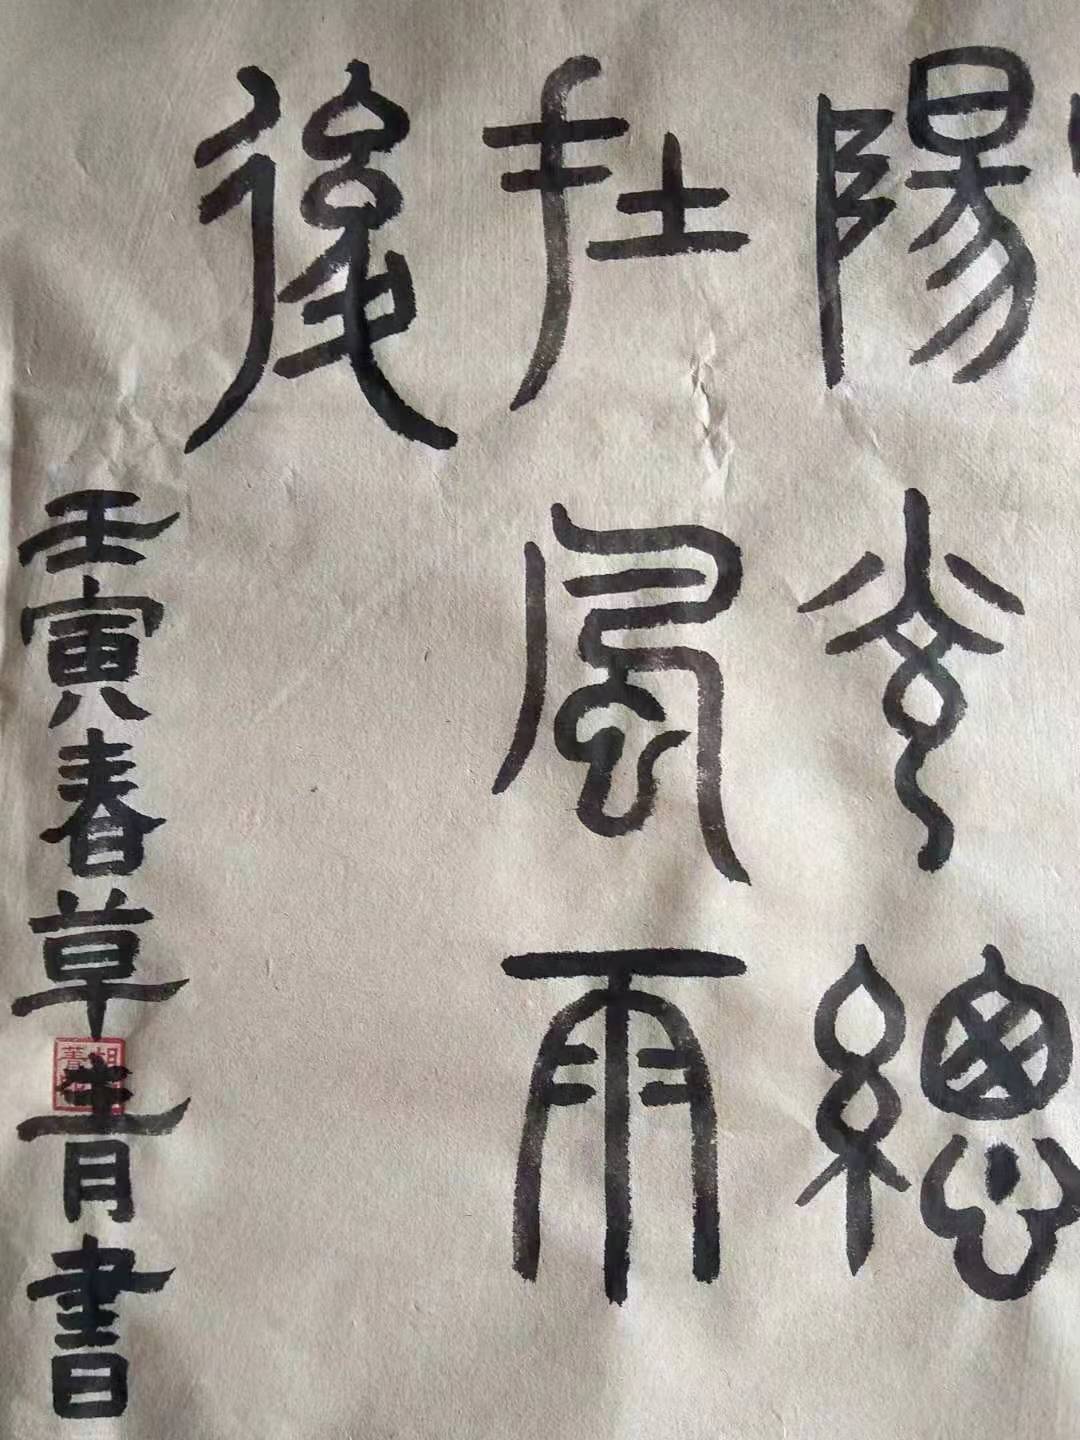 陽光總
在風雨
後
壬寅春草青書